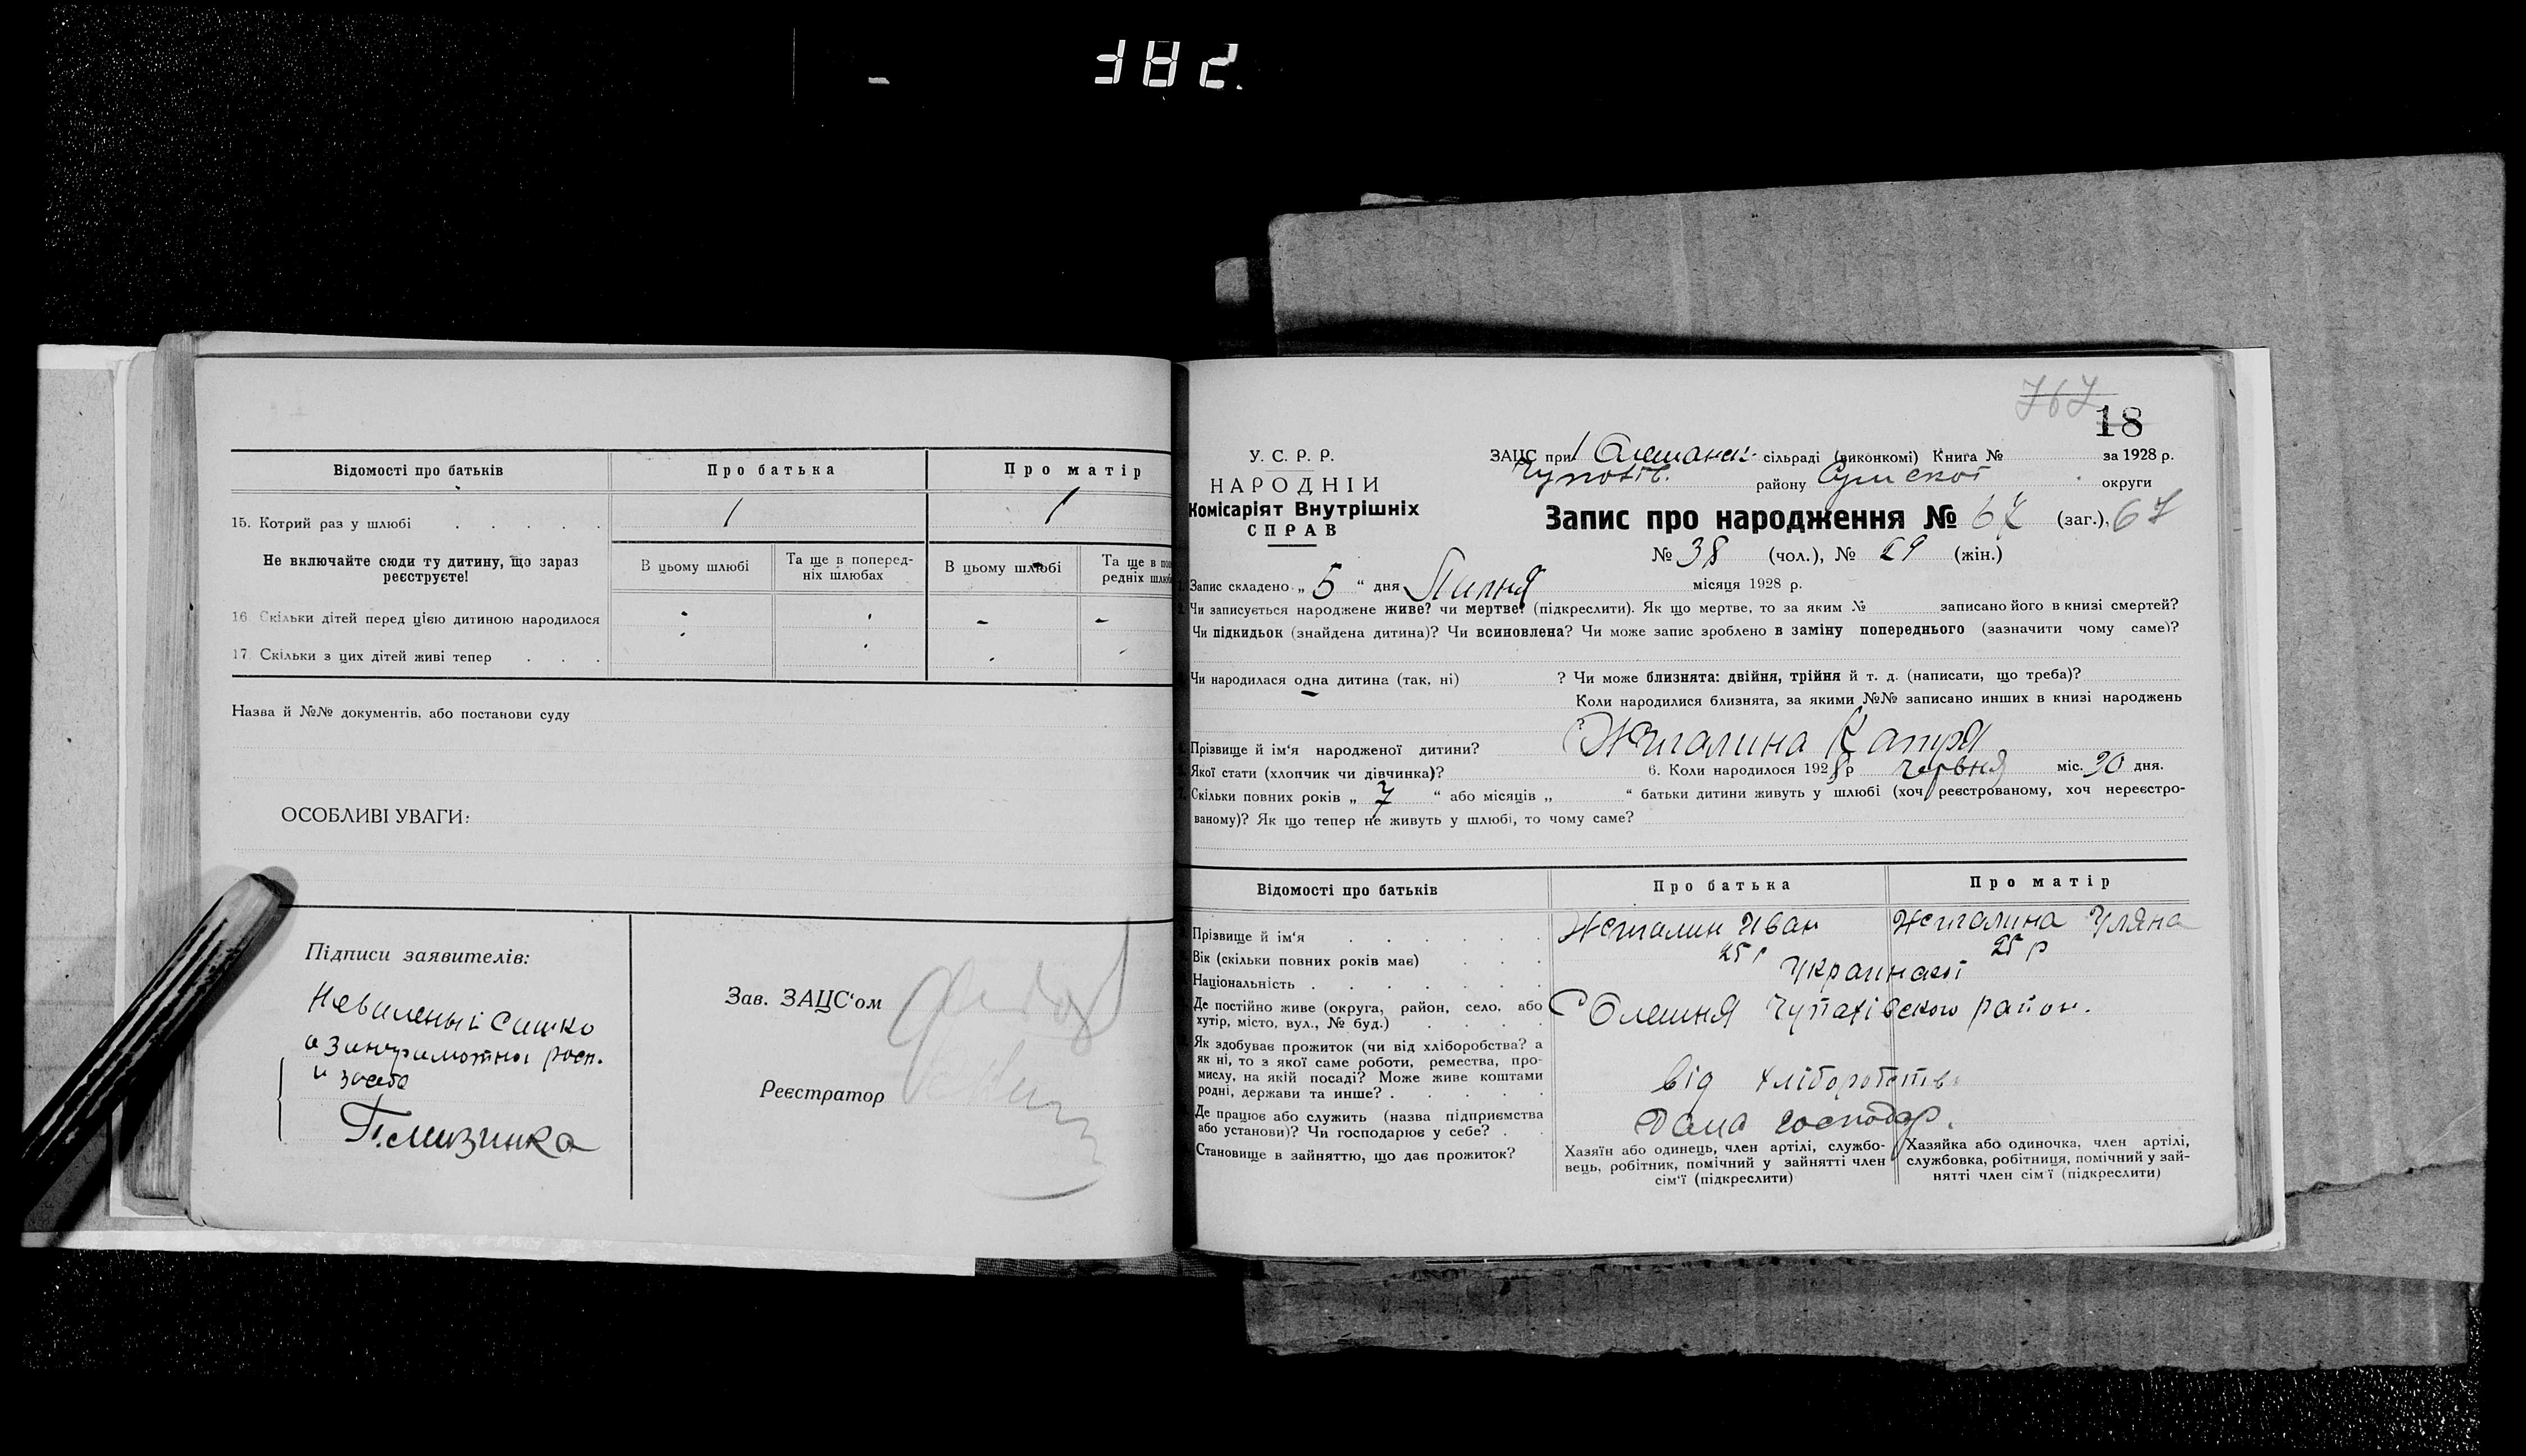 382.
Відомості про батьків
Про батька
Про матір
15. Котрий раз у шлюбі
1
1
Не включайте сюди ту дитину, що зараз
реєструєте!
В цьому шлюбі
Та ще в поперед-
ніх шлюбах
В цьому шлюбі
Та ще в по
редніх шлю
16. Скільки дітей перед цією дитиною народилося
- -
17. Скільки з цих дітей живі тепер
Назва й №№ документів, або постанови суду
ОСОБЛИВІ УВАГИ:
Підписи заявителів:
Сашко
Зав. ЗАЦС‘ом
Реєстратор
767
18
У. С. Р. Р.
НАРОДНІЙ
Комісаріят Внутрішніх
СПРАВ
ЗАЦС при сільраді (виконкомі) Книга № за 1928 р.
району Сумської округи
Запис про народження № 67 (заг.), 67
№ 38 (чол.), № 29 (жін.)
Запис складено „ 5 “ дня Липня місяця 1928 р.
Чи записується народжене живе? чи мертве? (підкреслити). Як що мертве, то за яким № записано його в книзі смертей?
Чи підкидьок (знайдена дитина)? Чи всиновлена? Чи може запис зроблено в заміну попереднього (зазначити чому саме)?
Чи народилася одна дитина (так, ні) ? Чи може близнята: двійня, трійня й т. д. (написати, що треба)?
Коли народилися близнята, за якими №№ записано инших в книзі народжень
Прізвище й ім‘я народженої дитини? Жигалина Катря
Якої стати (хлопчик чи дівчинка)? 6. Коли народилося 1928 р червня міс. 30 дня.
Скільки повних років „ 7 “ або місяців „ “ батьки дитини живуть у шлюбі (хоч реєстрованому, хоч нереєстро-
ваному)? Як що тепер не живуть у шлюбі, то чому саме?
Відомості про батьків
Про батька
Про матір
Прізвище й ім‘я Иван Уляна
Вік (скільки повних років має) 25 р 25 р
Національність
Де постійно живе (округа, район, село, або
хутір, місто, вул., № буд.)
С Олешня Чупахівского район.
Як здобуває прожиток (чи від хліборобства? а
як ні, то з якої саме роботи, ремества, про-
мислу, на якій посаді? Може живе коштами
родні, держави та инше?
від хліборобства
Де працює або служить (назва підприємства
або установи)? Чи господарює у себе?
Дома господар.
Становище в зайняттю, що дає прожиток?
Хазяїн або одинець, член артілі, службо-
вець, робітник, помічний у зайнятті член
сім‘ї (підкреслити)
Хазяйка або одиночка, член артілі,
службовка, робітниця, помічний у зай-
нятті член сім‘ї (підкреслити)